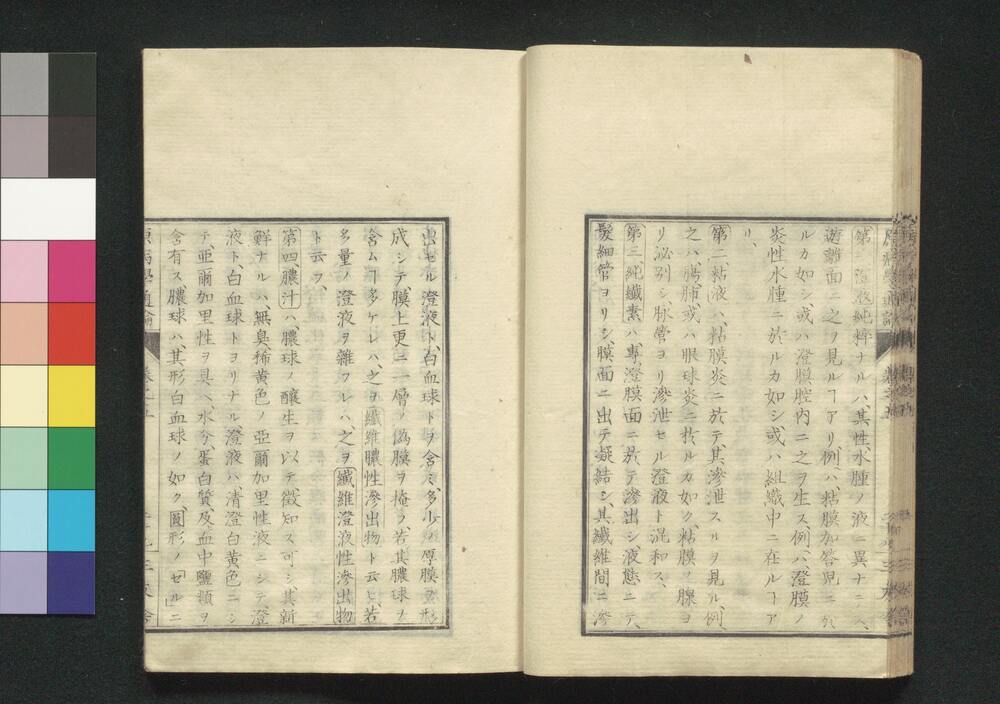 第一澄液純粹ナルハ、其性、水腫ノ液ニ異ナラス、
遊離面ニ之ヲ見ルヿアリ例ハ、粘膜加答兒ニ於
ルカ如シ、或ハ澄膜腔内ニ之ヲ生ス、例ハ、澄膜ノ
炎性水腫ニ於ルカ如シ或ハ組織中ニ在ルヿア
リ、
第二粘液ハ粘膜炎ニ於テ、其滲泄スルヲ見ル、例
之ハ、腸、肺、或ハ眼球炎ニ於ルカ如ク、粘膜ノ腺ヨ
リ泌別シ、脉管ヨリ滲泄セル澄液ト混和ス、
第三純纖素ハ、專、澄膜面ニ於テ滲出シ、液態ニテ、
髪細管ヨリシ、膜面ニ出テ凝結シ、其纖維間ニ滲
出セル澄液ト、白血球トヲ含ミ、多少ノ厚膜ヲ形
成シテ、膜上更ニ一層ノ僞膜ヲ掩フ、若其膿球ヲ
含ムヿ多ケレハ、之ヲ纖維膿性滲出物ト云ヒ、若
多量ノ澄液ヲ雜フレハ、之ヲ纖維澄液性滲出物
ト云フ、
第四、膿汁ハ、膿球ノ釀生ヲ以テ徵知ス可シ、其新
鮮ナルハ、無臭、稀黄色ノ亞爾加里性液ニシテ、澄
液ト、白血球トヨリナル、澄液ハ、清澄白黄色ニシ
テ、亞爾加里性ヲ具ヘ、水分、蛋白質、及血中鹽類ヲ
含有ス、膿球ハ、其形白血球ノ如ク、圓形ノ「ゼル」ニ
原病學通論